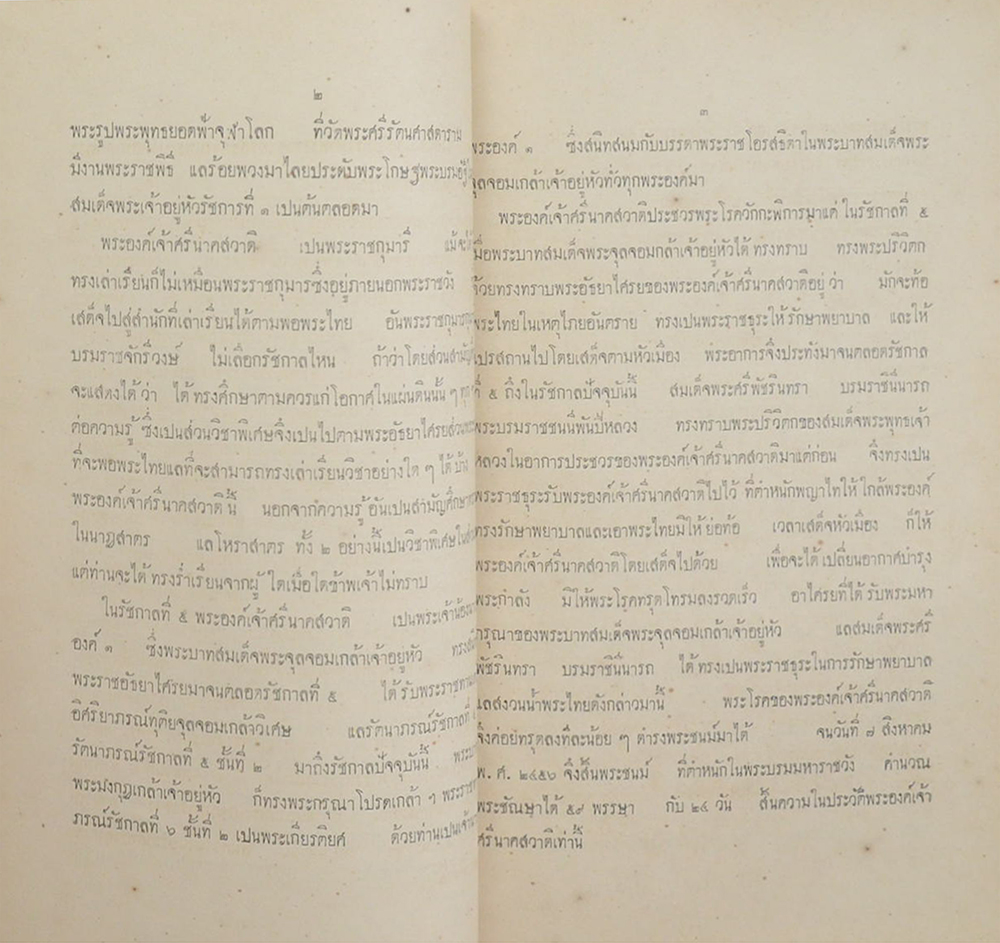 ๒
พระรูปพระพุทธยอดฟ้าจุฬาโลก ที่วัดพระศรีรัตนศาสดาราม
มีงานพระราชพิธี แลร้อยพวงมาไลยประดับพระโกษฐพระบรมอัฐิ
สมเด็จพระเจ้าอยู่หัวรัชการที่ ๑ เปนต้นตลอดมา
พระองค์เจ้าศรีนาคสวาดิ เปนพระราชกุมารี แม้จะได้
ทรงเล่าเรียนก็ไม่เหมือนพระราชกุมารซึ่งอยู่ภายนอกพระราชวัง
เสด็จไปสู่สำนักที่เล่าเรียนได้ตามพอพระไทย อันพระราชกุมารี
บรมราชจักรีวงษ์ ไม่เลือกรัชกาลไหน ถ้าว่าโดยส่วนสามัญ
จะแสดงได้ว่า ได้ทรงศึกษาตามควรแก่โอกาศในแผ่นดินนั้น ๆ
ต่อความรู้ ซึ่งเปนส่วนวิชาพิเศษจึงเปนไปตามพระอัธยาไศรยส่วน
ที่จะพอพระไทยแลที่จะสามารถทรงเล่าเรียนวิชาอย่างใด ๆ ได้บ้าง
พระองค์เจ้าศรีนาคสวาดินี้ นอกจากความรู้อันเปนสามัญศึกษา
ในนาฏสาตร แลโหราสาตร ทั้ง ๒ อย่างนี้เปนวิชาพิเศษใน
แต่ท่านจะได้ทรงร่ำเรียนจากผู้ใดเมื่อใดข้าพเจ้าไม่ทราบ
ในรัชกาลที่ ๕ พระองค์เจ้าศรีนาคสวาดิ เปนพระเจ้าน้อง
องค์ ๑ ซึ่งพระบาทสมเด็จพระจุลจอมเกล้าเจ้าอยู่หัว ทรง
พระราชอัธยาไศรยมาจนตลอดรัชกาลที่ ๕ ได้รับพระราชทาน
อิศริยาภรณ์ทุติยจุลจอมเกล้าวิเศษ แลรัตนาภรณ์รัชกาลที่
รัตนาภรณ์รัชกาลที่ ๕ ชั้นที่ ๒ มาถึงรัชกาลปัจจุบันนี้
พระมงกุฎเกล้าเจ้าอยู่หัว ก็ทรงพระกรุณาโปรดเกล้า ฯ
ภรณ์รัชกาลที่ ๖ ชั้นที่ ๒ เปนพระเกียรติยศ ด้วยท่านเปนเจ้า
๓
พระองค์ ๑ ซึ่งสนิทสนมกับบรรดาพระราชโอรสธิดาในพระบาทสมเด็จพระ
จุลจอมเกล้าเจ้าอยู่หัวทั่วทุกพระองค์มา
พระองค์เจ้าศรีนาคสวาดิประชวรพระโรควักกะพิการมาแต่ในรัชกาลที่ ๕
เมื่อพระบาทสมเด็จพระจุลจอมเกล้าเจ้าอยู่หัวได้ทรงทราบ ทรงพระปริวิตก
ด้วยทรงทราบพระอัธยาไศรยของพระองค์เจ้าศรีนาคสวาดิอยู่ว่า มักจะท้อ
พระไทยในเหตุไภยอันตราย ทรงเปนพระราชธุระให้รักษาพยาบาล และให้
แปรสถานไปโดยเสด็จตามหัวเมือง พระอาการจึงประทังมาจนตลอดรัชกาล
ที่ ๕ ถึงในรัชกาลปัจจุบันนี้ สมเด็จพระศรีพัชรินทรา บรมราชินีนารถ
พระบรมราชชนนีพันปีหลวง ทรงทราบพระปริวิตกของสมเด็จพระพุทธเจ้า
หลวงในอาการประชวรของพระองค์เจ้าศรีนาคสวาดิมาแต่ก่อน จึงทรงเปน
พระราชธุระรับพระองค์เจ้าศรีนาคสวาดิไปไว้ ที่ตำหนักพญาไทให้ใกล้พระองค์
ทรงรักษาพยาบาลและเอาพระไทยมิให้ย่อท้อ เวลาเสด็จหัวเมือง ก็ให้
พระองค์เจ้าศรีนาคสวาดิโดยเสด็จไปด้วย เพื่อจะได้เปลี่ยนอากาศบำรุง
พระกำลัง มิให้พระโรคทรุดโทรมลงรวดเร็ว อาไศรยที่ได้รับพระมหา
กรุณาของพระบาทสมเด็จพระจุลจอมเกล้าเจ้าอยู่หัว แลสมเด็จพระศรี
พัชรินทรา บรมราชินีนารถ ได้ทรงเปนพระราชธุระในการรักษาพยาบาล
แลสงวนน้ำพระไทยดังกล่าวมานี้ พระโรคของพระองค์เจ้าศรีนาคสวาดิ
จึงค่อยทรุดลงทีละน้อย ๆ ดำรงพระชนม์มาได้ จนวันที่ ๗ สิงหาคม
พ. ศ. ๒๔๕๖ จึงสิ้นพระชนม์ ที่ตำหนักในพระบรมมหาราชวัง คำนวณ
พระชัณษาได้ ๕๙ พรรษา กับ ๒๔ วัน สิ้นความในประวัติพระองค์เจ้า
ศรีนาคสวาดิเท่านี้